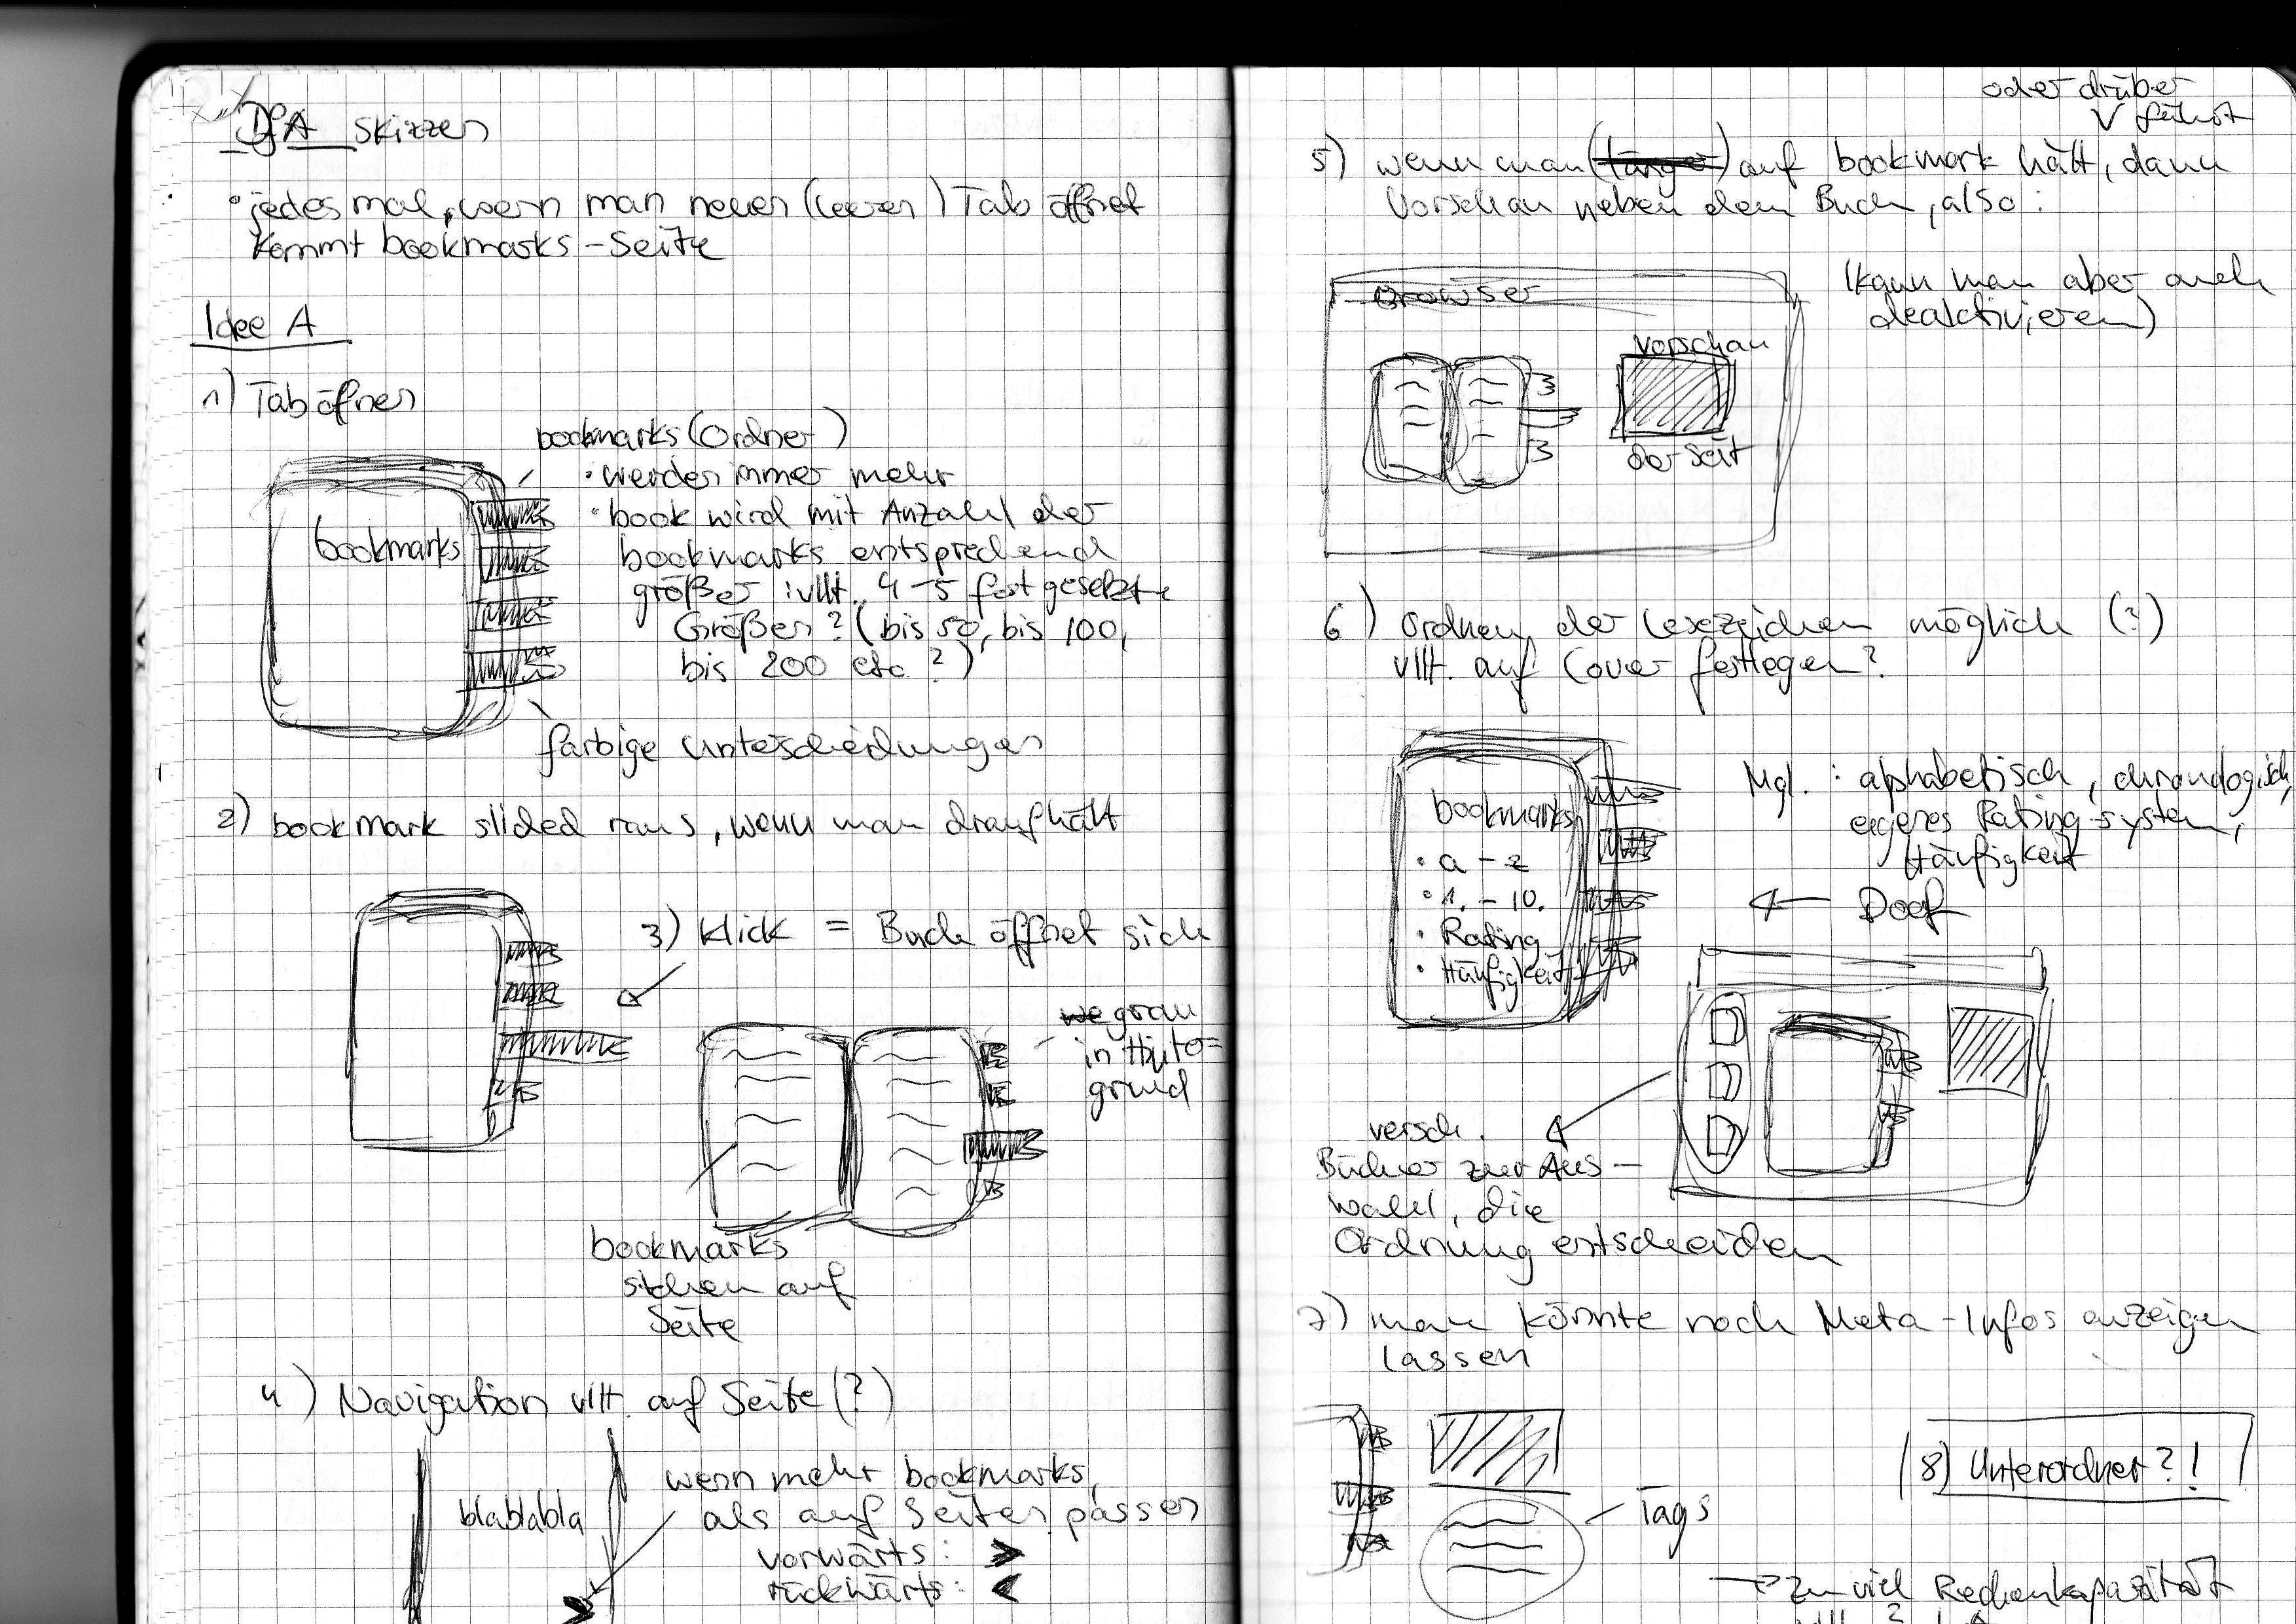 DgA skizzen
• jedes mal, wenn man neuen (leeren) Tab öffnet
kommt bookmarks-Seite
Idee A
1) Tab öffnen
bookmarks (Ordner)
• werden immer mehr
• book wird mit Anzahl der
bookmarks entsprechend
größer : vllt. 4-5 festgesetzte
Größen? (bis 50, bis 100,
bis 200 etc.?)
bookmarks
farbige Unterscheidungen
2) bookmark slided raus, wenn man draufhält
3) Klick = Buch öffnet sich
grau
in Hinter-
grund
bookmarks
stehen auf
Seite
4) Navigation vllt. auf Seite (?)
blablabla
wenn mehr bookmarks,
als auf Seiten passen
vorwärts: >
rückwärts: <
oder drüber
fährt
5) wenn man (länger) auf bookmark hält, dann
Vorschau neben dem Buch, also:
Browser
Vorschau
der Seit
(kann man aber auch
deaktivieren)
6) Ordnen der Lesezeichen möglich (?)
vllt. auf Cover festlegen?
bookmarks
• a - z
• 1. - 10.
• Rating
• Häufigkeit
Mgl. : alphabetisch, chronologisch,
eigenes Rating-system,
Häufigkeit
← Doof
versch.
Bücher zur Aus-
wahl, die
Ordnung entscheiden
7) man könnte noch Meta-Infos anzeigen
lassen
Tags
8) Unterordner?!
→ zu viel Rechenkapazität